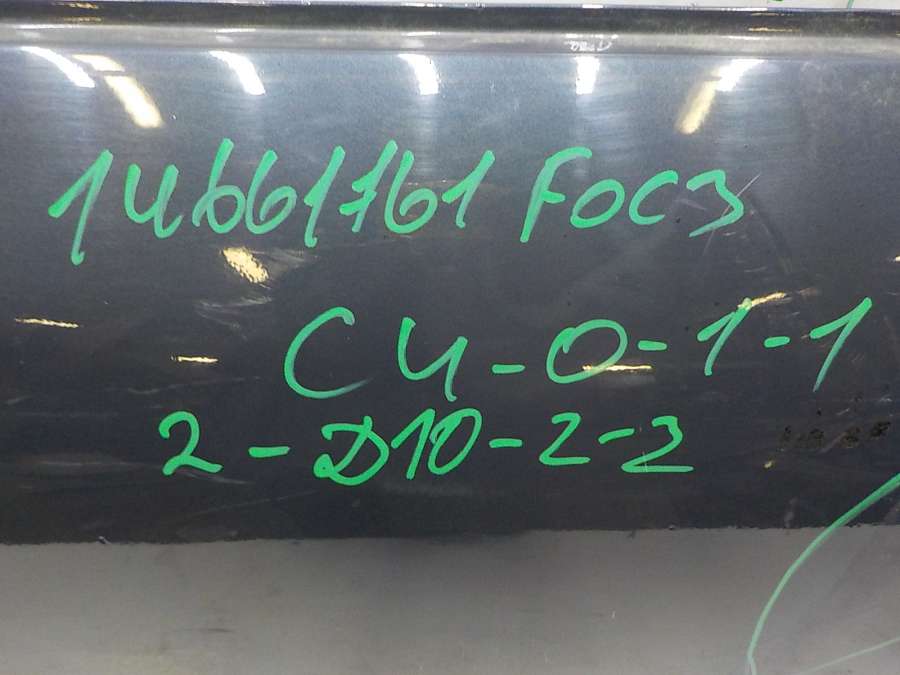 14661761 FOC3
C4-0-1-1
2-D10-2-2